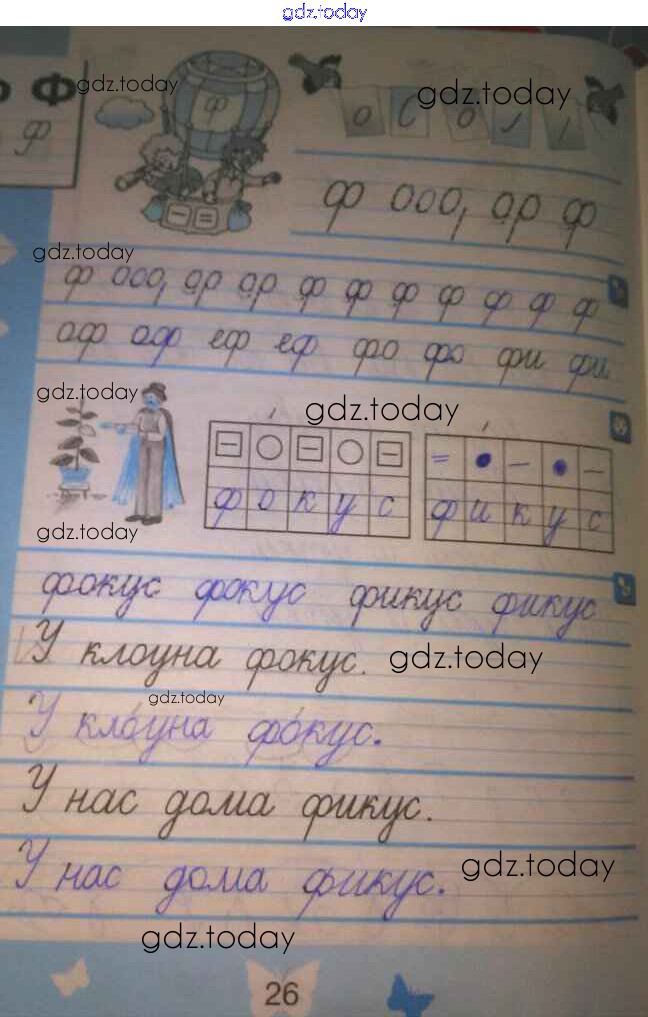 gdz.today
Ф gdz.today
ф ф gdz.today
ф ооо, ор ф
gdz.today
ф ооо, ор ор ф ф ф ф ф ф ф
оф оф еф еф фо фо фи фи
gdz.today gdz.today
= • – • –
ф о к у с ф и к у с
gdz.today
фокус фокус фикус фикус
У клоуна фокус. gdz.today
gdz.today
У клоуна фокус.
У нас дома фикус.
У нас дома фикус. gdz.today
gdz.today
26